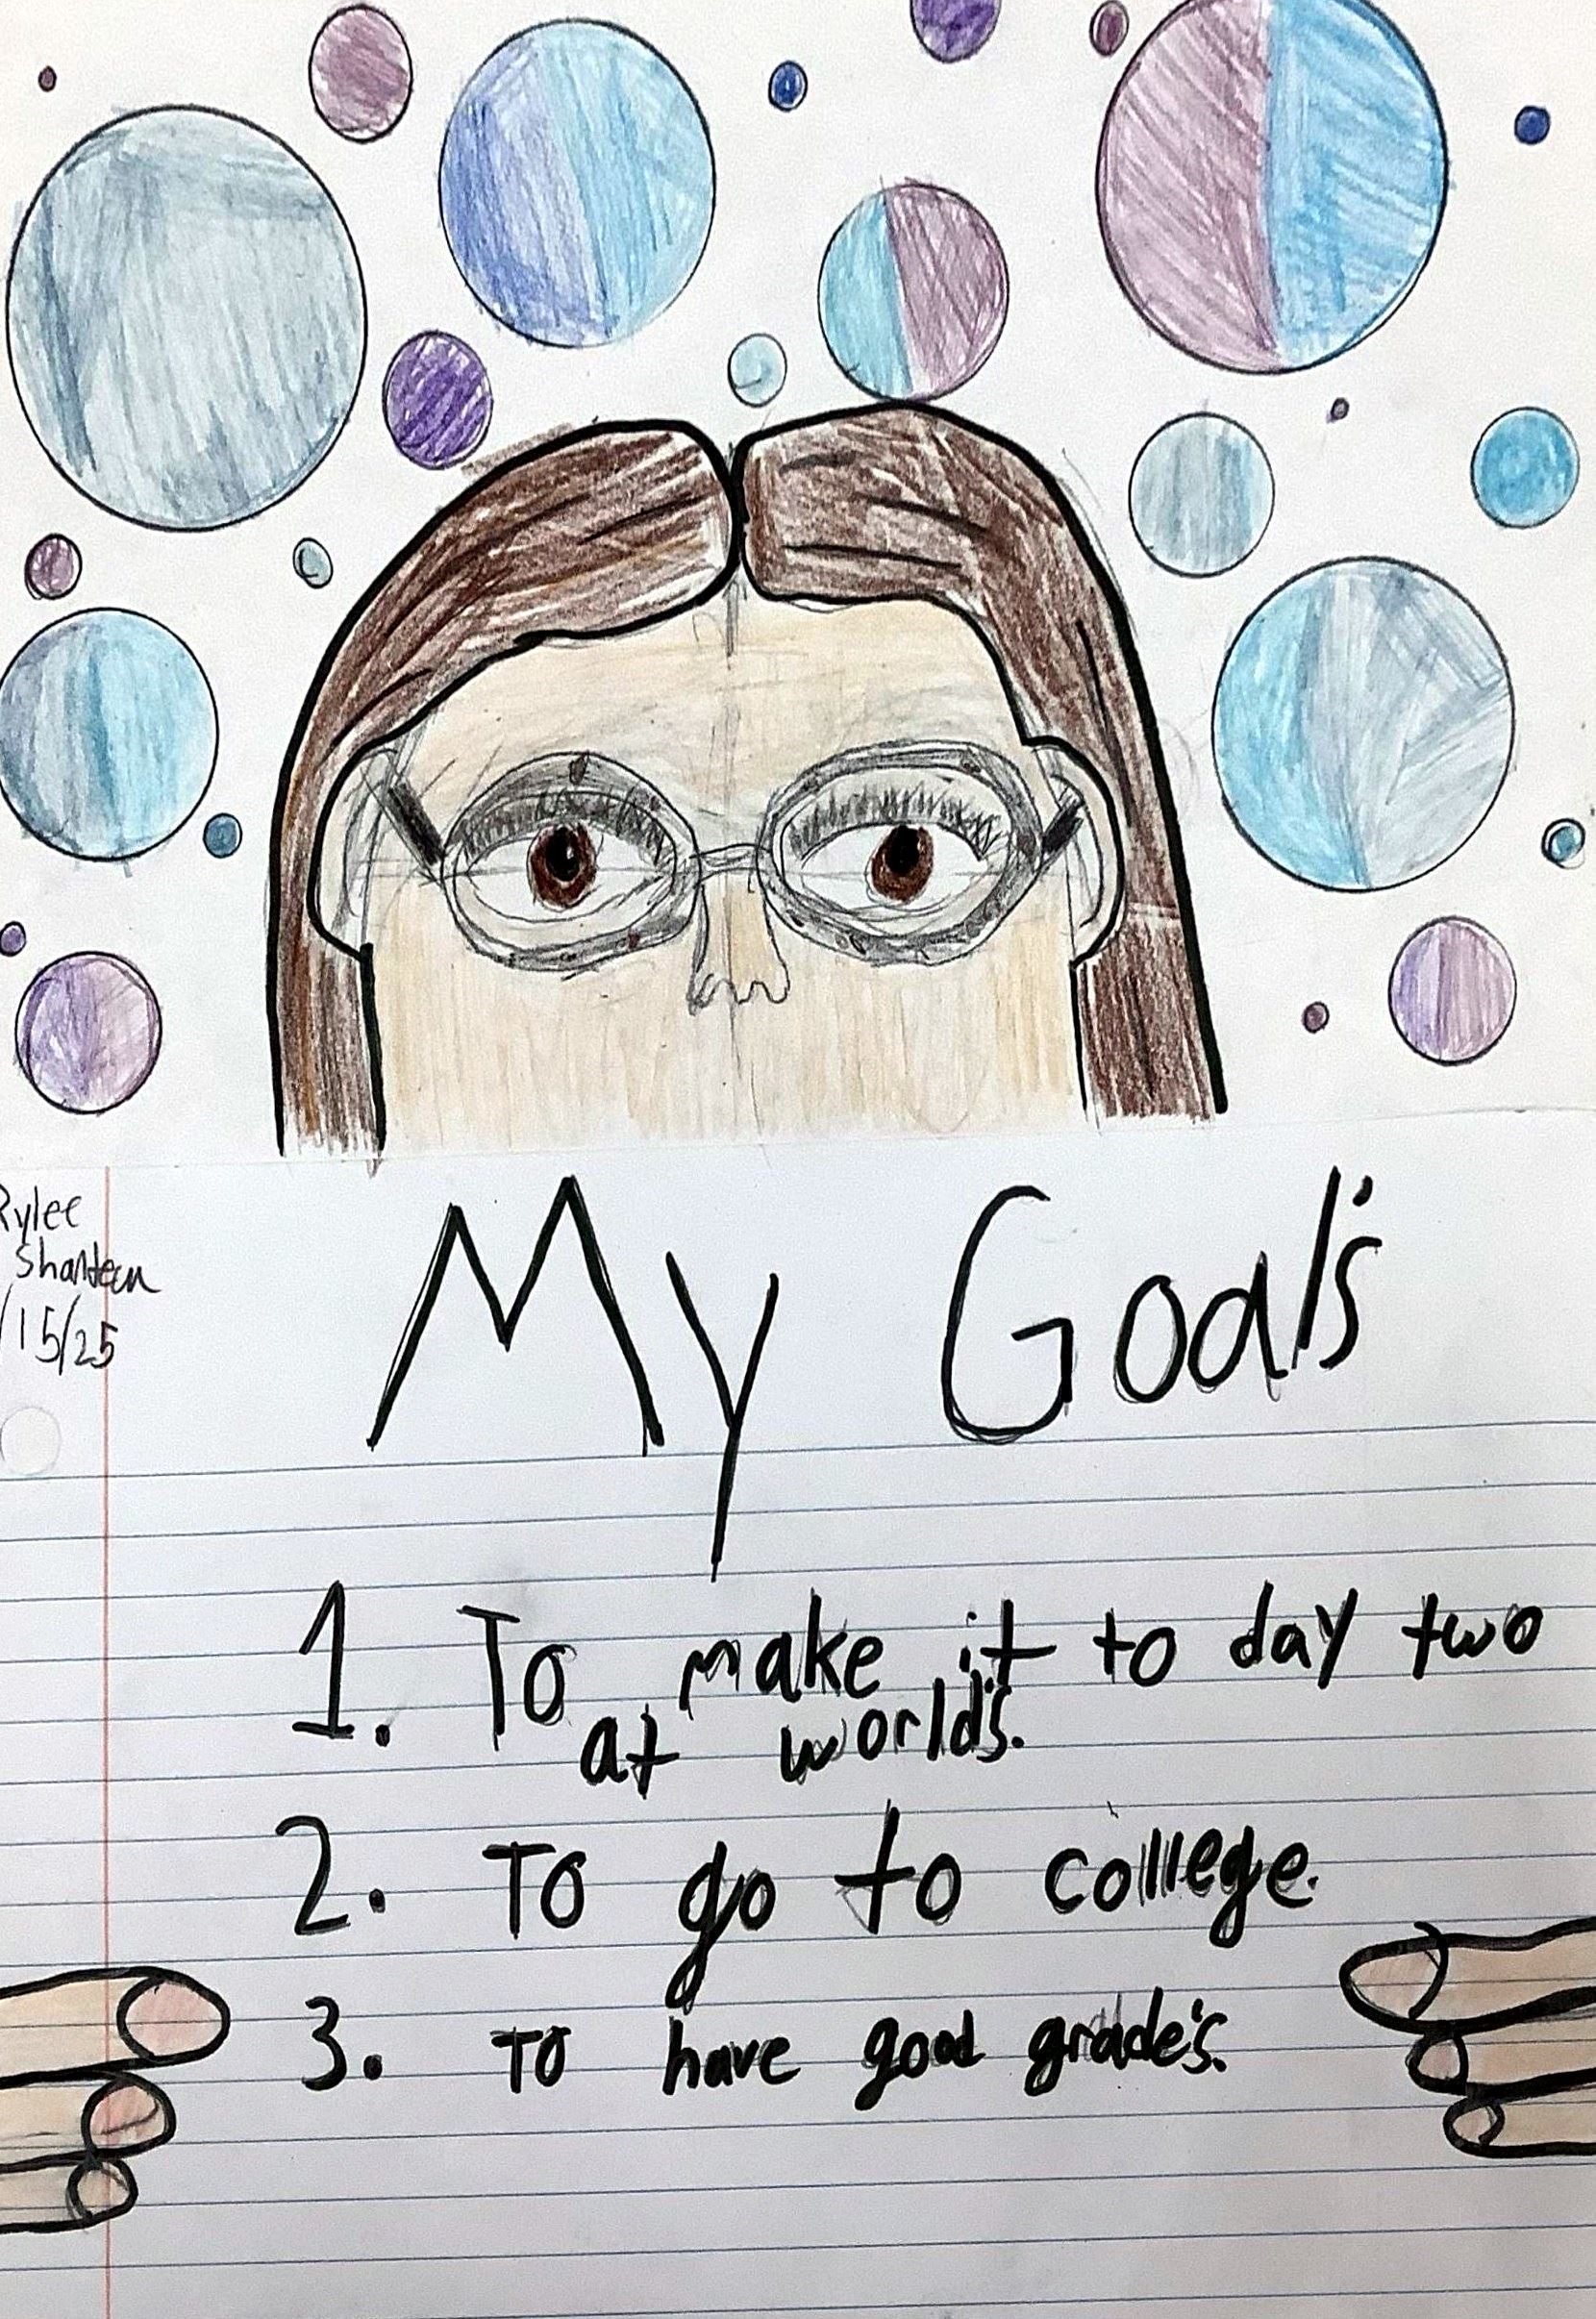 Rylee
/15/25
My Goal's
1. To make it to day two
at world's.
2. To go to college.
3. To have good grade's.